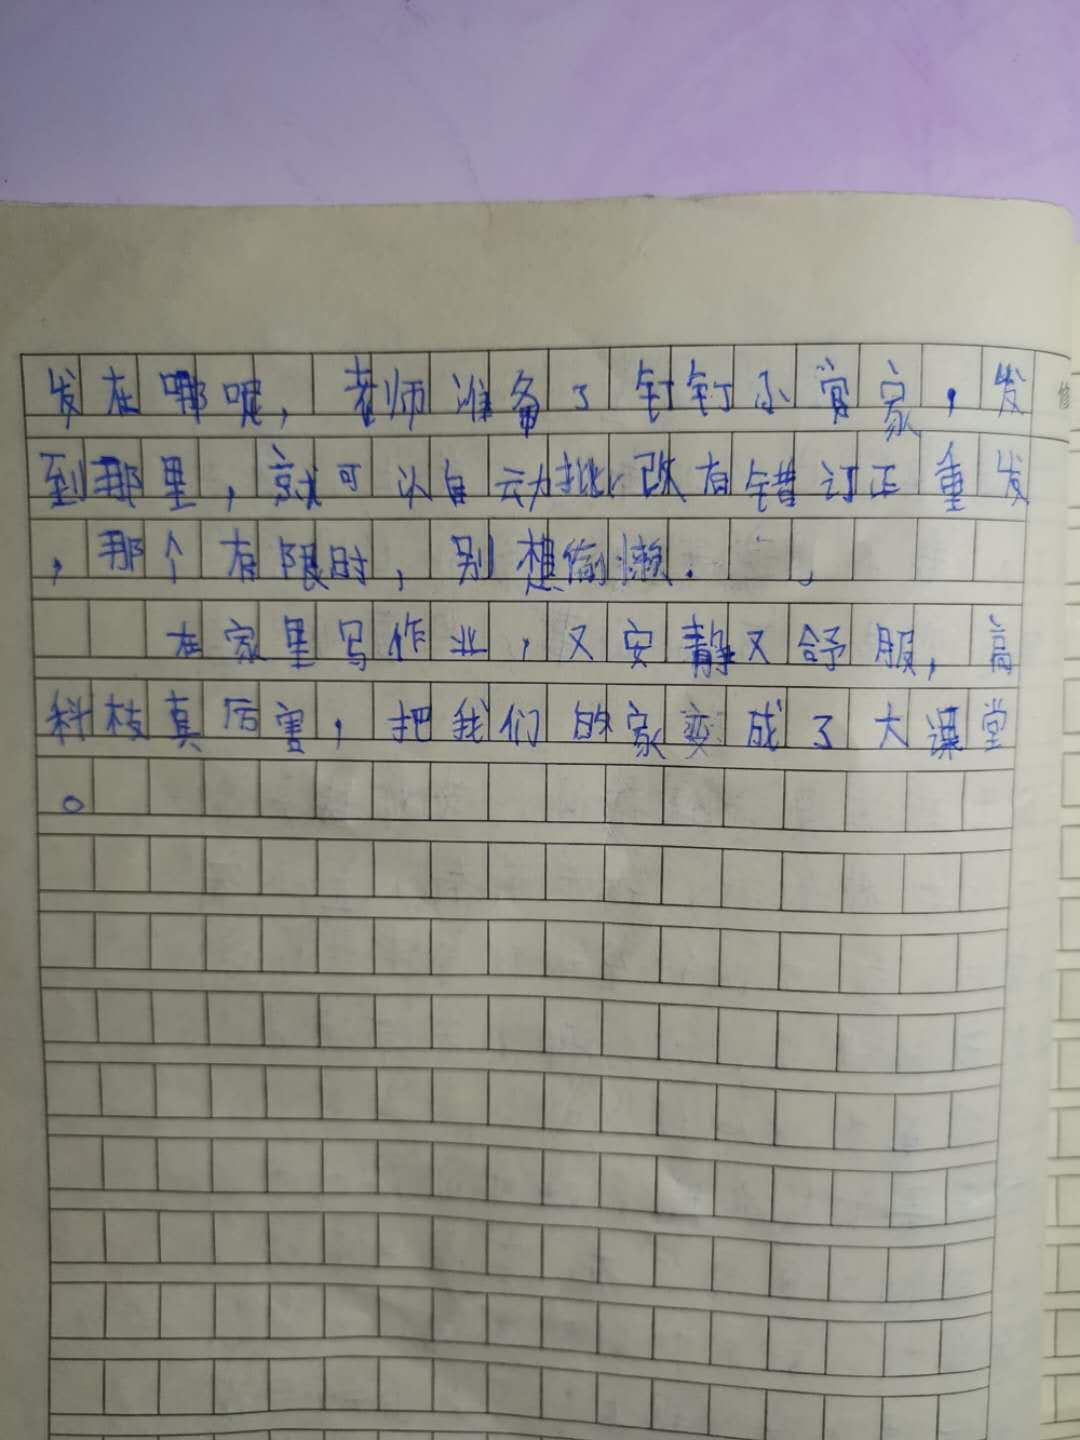 发在哪呢，老师准备了钉钉小管家，发
到那里，就可以自动批改有错订正重发
，那个有限时，别想偷懒.
在家里写作业，又安静又舒服，高
科技真厉害，把我们的家变成了大课堂
。